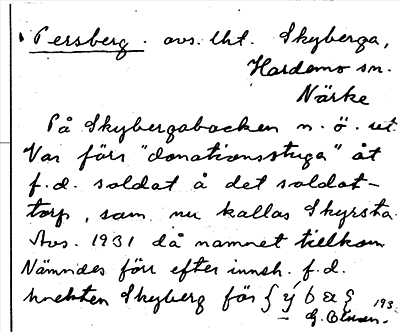 Persberg. avs. lht. Skyberga,
Hardemo sn.
Närke
På Skybergabacken n. ö. ut.
Var förr "donationsstuga" åt
f.d. soldat å det soldat-
torp, som nu kallas Skyrsta.
Avs. 1931 då namnet tillkom
Nämndes förr efter inneh. f.d.
knekten Skyberg för
193
G.